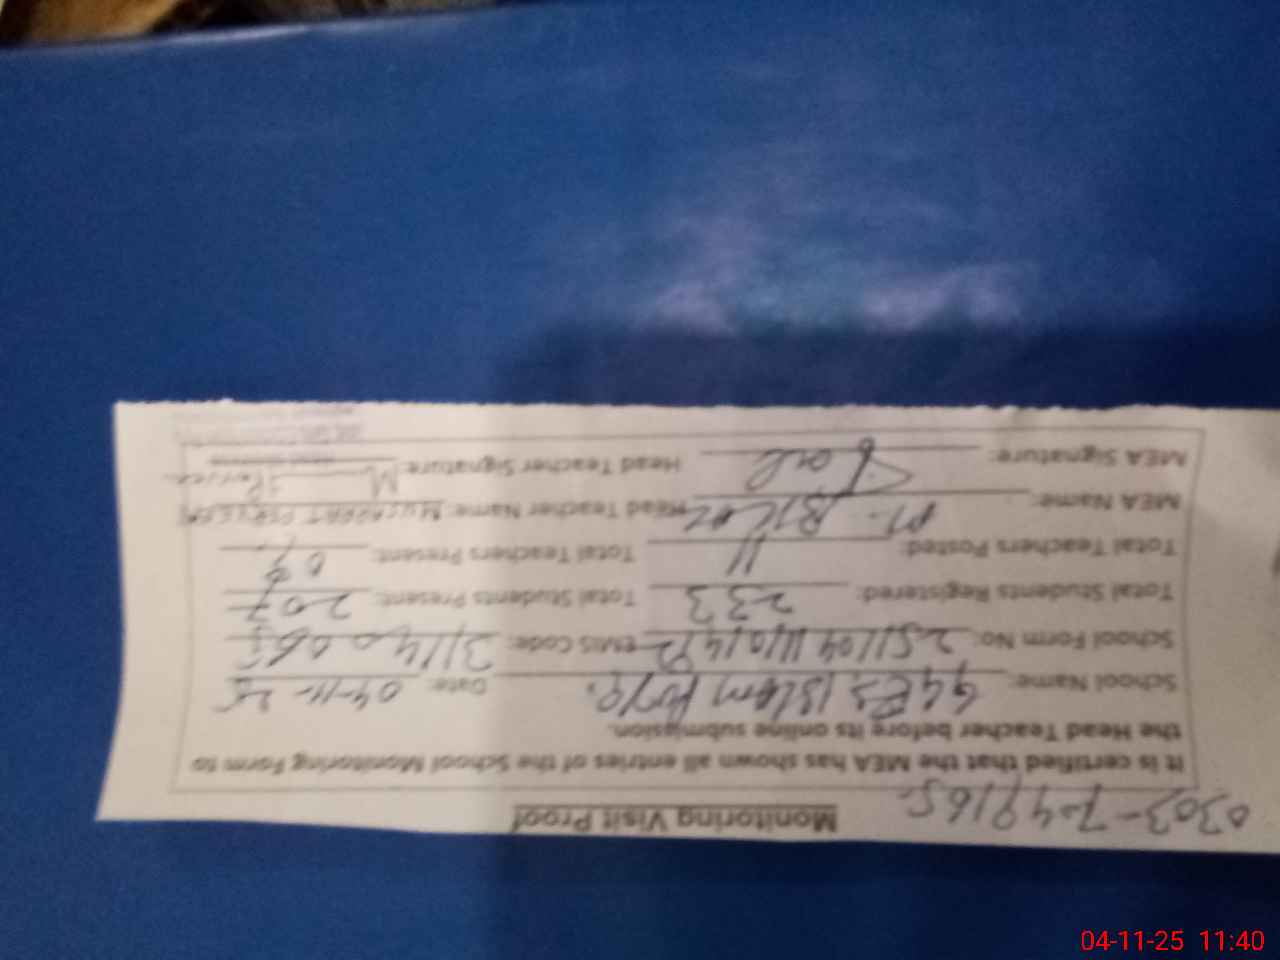 0303-7049165.
Monitoring Visit Proof
It is certified that the MEA has shown all entries of the School Monitoring Form to
the Head Teacher before its online submission.
School Name: Islam Date: 04-11-25
School Form No: EMIS Code:
Total Students Registered: 233 Total Students Present: 207
Total Teachers Posted: 11 Total Teachers Present: 09
MEA Name: M. Head Teacher Name: MUSARRAT PERVEEN
MEA Signature: Head Teacher Signature: M
04-11-25 11:40